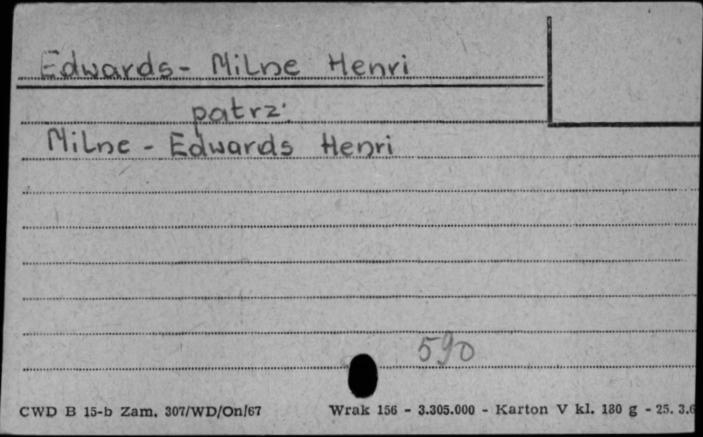 Edwards - Milne Henri
patrz:
Milne - Edwards Henri
590
CWD B 15-b Zam. 307/WD/On/67 Wrak 156 - 3.305.000 - Karton V kl. 180 g - 25. 3.6